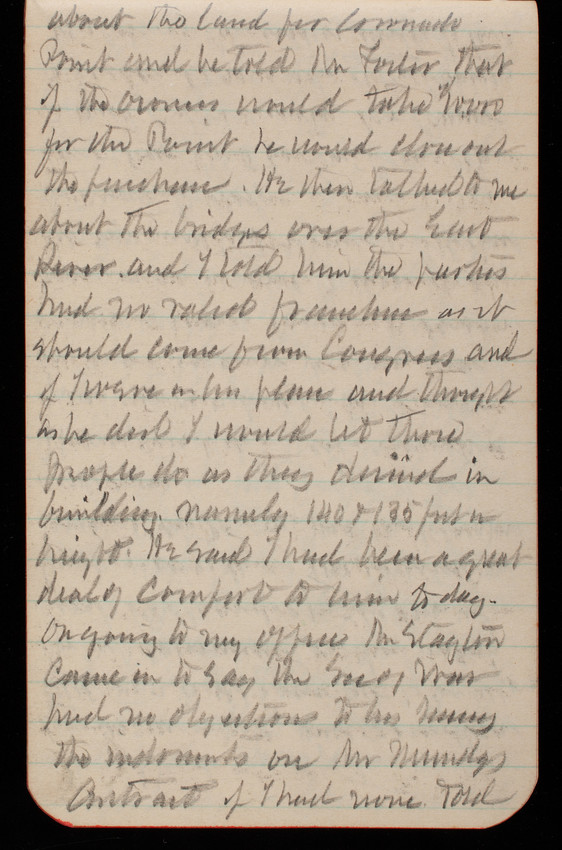 about the land for Coronado
Point and he told Mr Foster that
if the owners would take
for the Point he would close out
the purchase. He then talked to me
about the bridges over the East
River and I told him the parties
had no valid franchise as it
should come from Congress and
if I were in his place and thought
as he did I would let those
people do as they desired in
building namely 140 & 135 feet in
height. He said I had been a great
deal of comfort to him to day.
On going to my office Mr
came in to say the Secy War
had no objections to his
the on Mr
Contract if I had none. Told